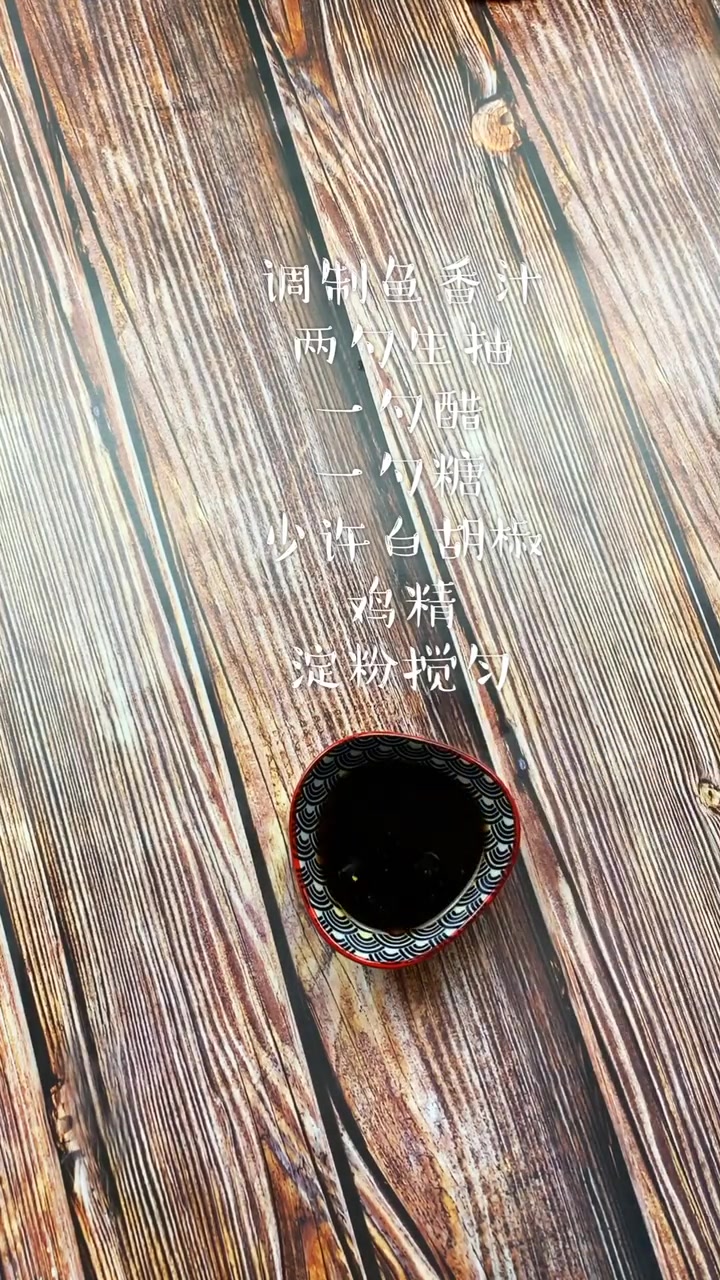 调制鱼香汁
两勺生抽
一勺醋
一勺糖
少许白胡椒
鸡精
淀粉搅匀